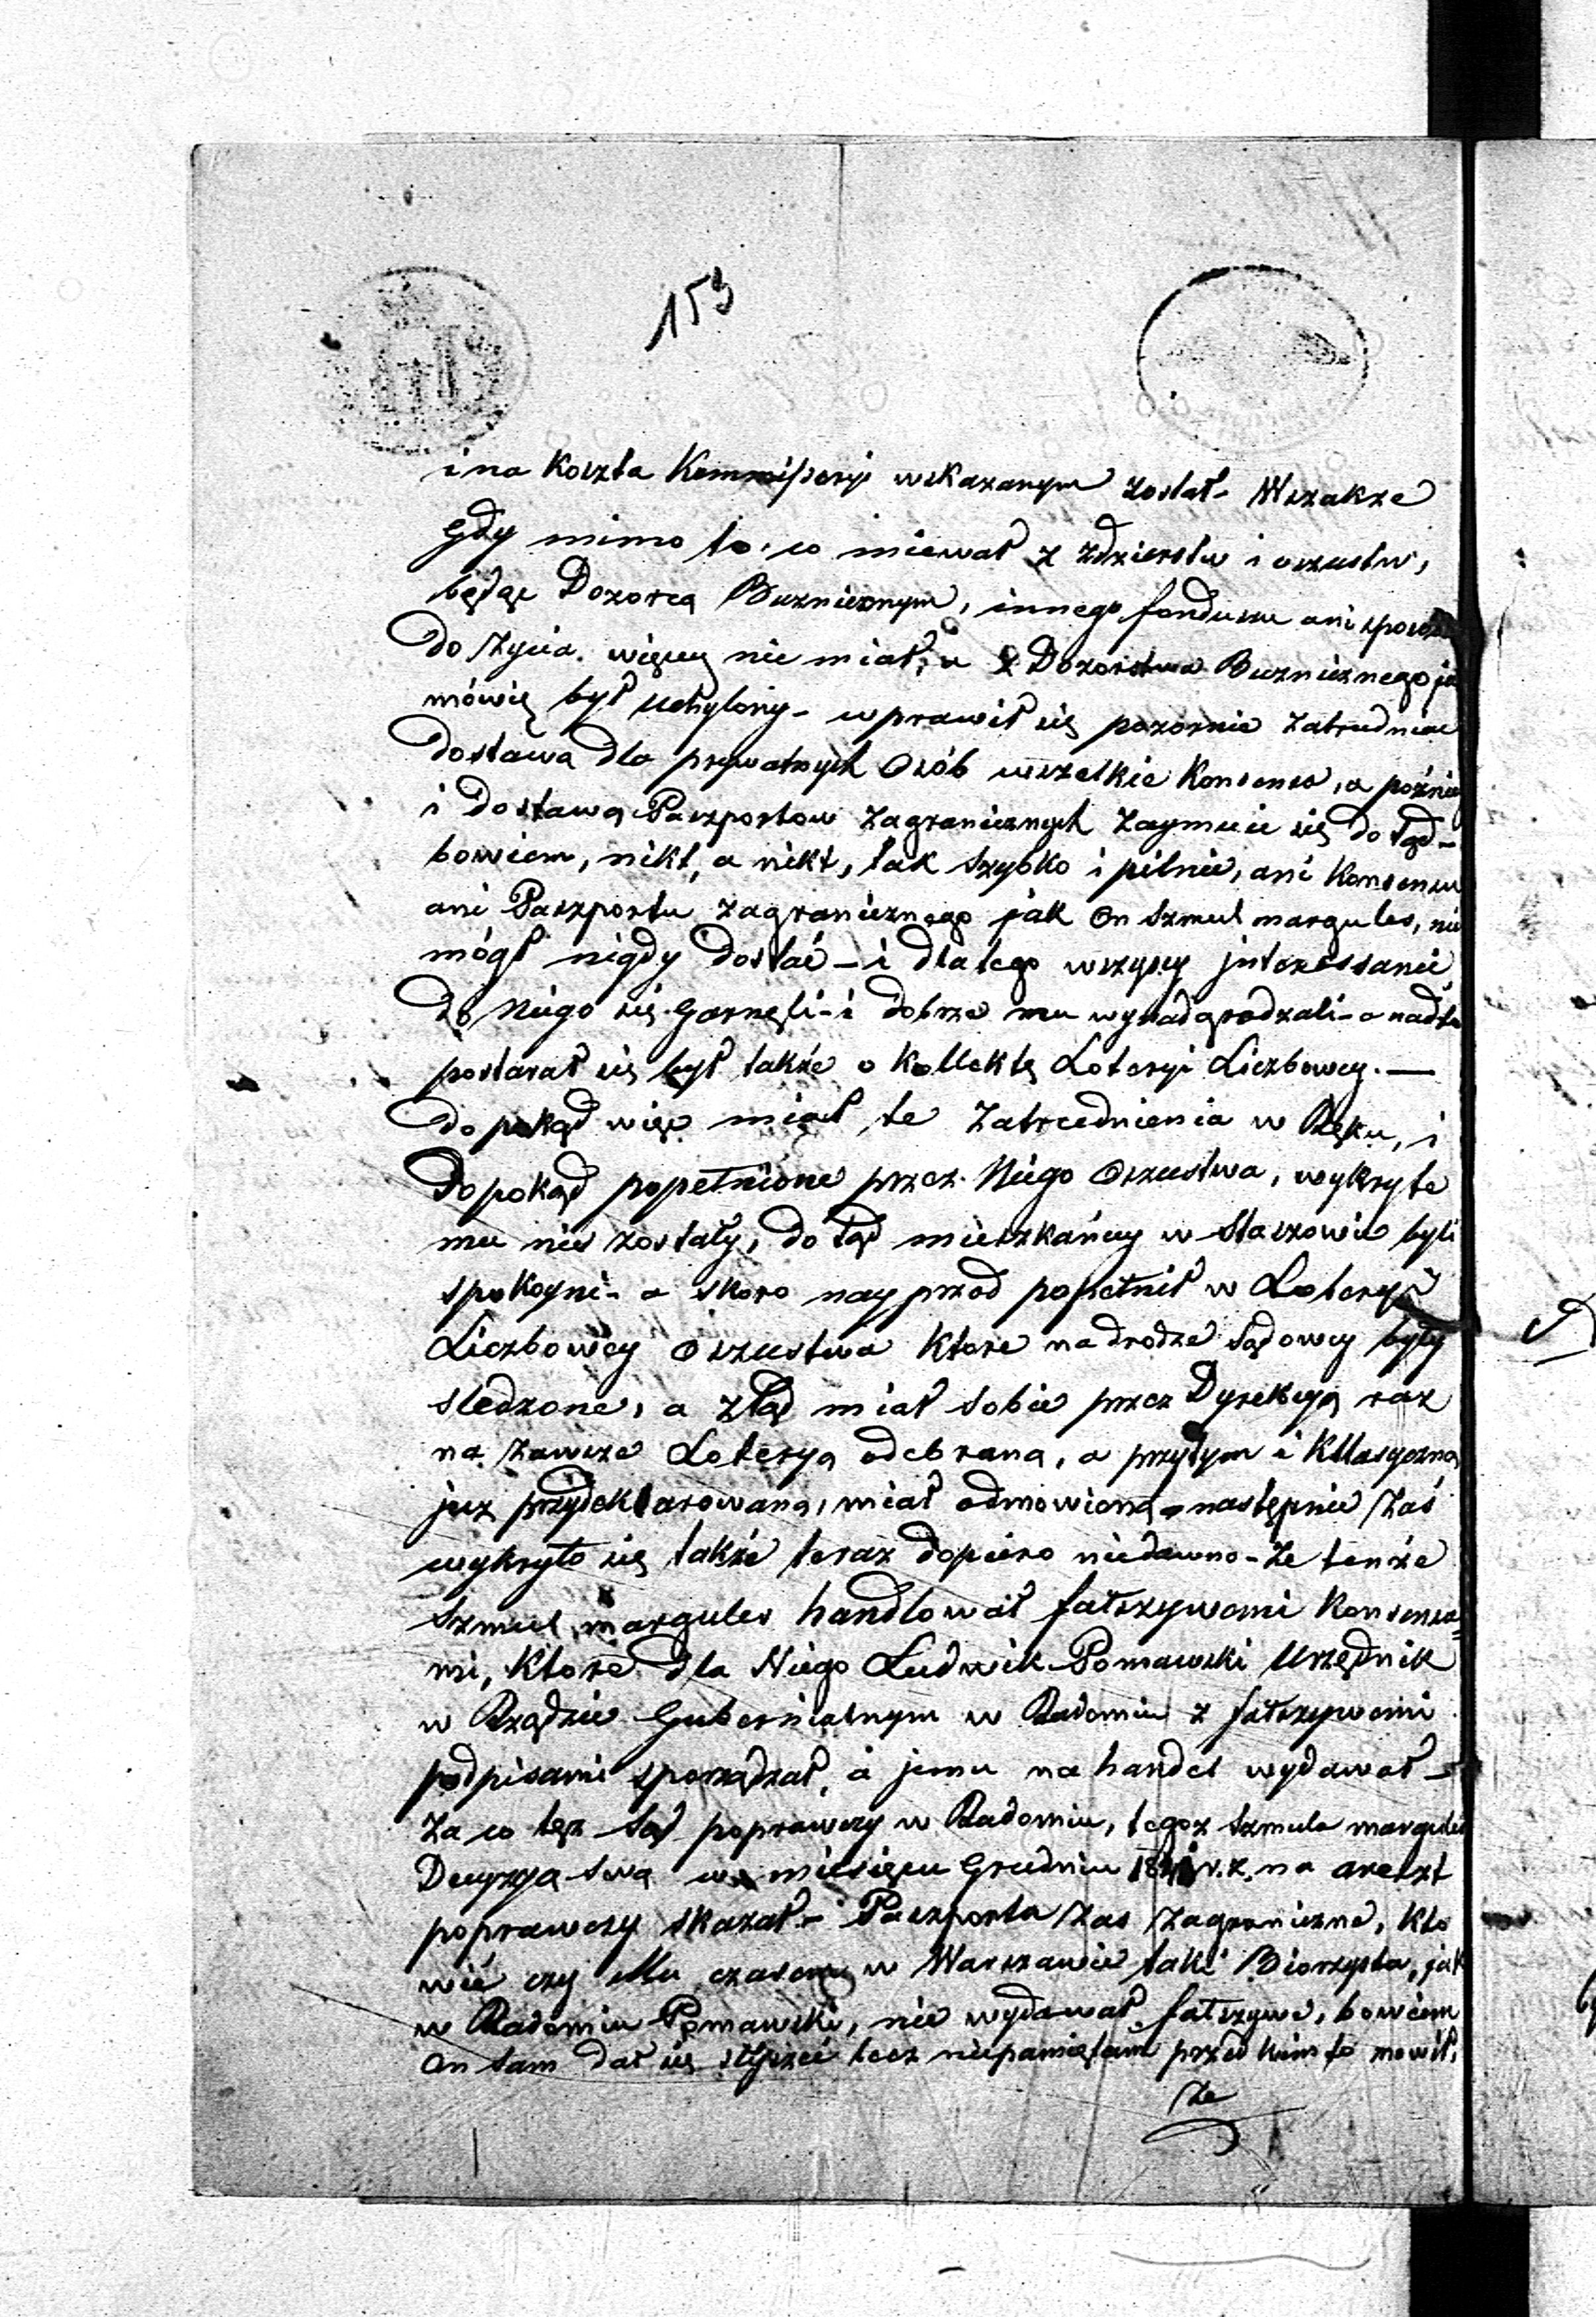 153
i na koszta Kommissyi wskazanym został - Wszakże
Gdy mimo to, co miewał z zdzierstw i oszustw,
będąc Dozorcą Buznicznym, innego funduszu ani sposobu
do życia więcey nie miał, a z Dozorstwa Buznicznego ja
mówię był uchylony - wprawił się pozornie zatrudniać
dostawą dla prywatnych Osób wszelkie Konsensa, a później
i Dostawą Paszportow Zagranicznych Zaymuie się do tąd -
bowiem, nikt, a nikt, tak szybko i pilnie, ani Konsensu
ani Paszportu Zagranicznego jak On Szmul margules, nie
mógł nigdy dostać - i dlatego wszyscy interessanci
do Niego się garnęli - i dobrze mu wynadgradzali - a nadto
postarał się był także o Kollektę Loteryi Liczbowey. —
do pokąd więc miał te Zatrudnienia w Ręku, i
dopokąd popełnione przez Niego Oszustwa, wykryte
mu nie zostały, do tąd mieszkańcy w Staszowie byli
spokoyni - a skoro nayprzod popełnił w Loteryi
Liczbowey Oszustwa ktore na drodze Sądowey były
sledzone, a ztąd miał sobie przez Dyrekcyą raz
na zawsze Loteryą odebraną, a przytym i Kllasyczną
juz przydeklarowaną, miał odmowioną - następnie zaś
wykryło się także teraz dopiero niedawno - że tenże
Szmul margules handlował fałszywemi Konsensa=
mi, Ktore dla Niego Ludwik Pomawski Urzędnik
w Rządzie Gubernialnym w Radomiu z fałszywemi
podpisami sporządzał, a jemu na handel wydawał -
Za co też Sąd poprawczy w Radomiu, tegoz Szmula margules
Decyzyą swą w miesięcu Grudniu r.z. na areszt
poprawczy skazał - Paszporta zas zagraniczne, kto
wie czy Mu czasem w Warszawie taki Biorzysta, jak
w Radomiu Pomawski, nie wydawał fałszywe, bowiem
On sam dał się słyszeć lecz niepamiętam przed kim to mowił,
że